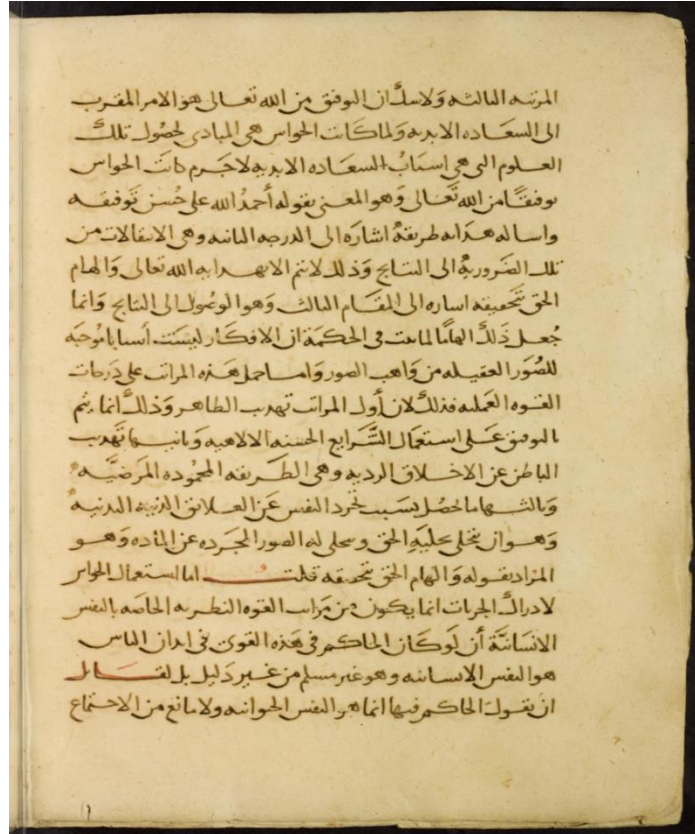 المرتبه الثالثه ولا شك ان التوفيق من الله تعالى هو الامر المقرب
الى السعاده الابديه ولما كانت الحواس هى المبادى لحصول تلك
العلوم التى هى اسباب السعاده الابديه لا جرم كانت الحواس
توفيقًا من الله تعالى وهو المعنى بقوله أحمدُ الله على حُسن توفيقه
واساله هدايه طريقهُ اشارَه الى الدرجه الثانيه وهى الانتقالات من
تلك الضروريهُ الى النتايج وذلك لا يتم الا بهدايه الله تعالى والهام
الحق بتحقيقه اشاره الى المقام الثالث وهو الوصُول الى النتايج وانما
جُعل ذلك الهامًا لما ثبت فى الحكمة ان الافكار ليست أسبابا مُوجبه
للصُوَر العقيله من واهب الصور واما حمل هذه المراتب على درجات
القوه العمليه فذلك لان أول المراتب تهذيب الظاهر وذلك انما يتم
بالتوفيق على استعمال الشرايع الحسنه الالاهيه وثانيها تهذيب
الباطن عن الاخلاق الرديه وهى الطريقه المحمُوده المرضيَّه
وثالثها ما يحصُل بسَبب تجرد النفس عن العلائق الدنيه البدنيه
وهو ان يتحلى بحليَهِ الحق ويتجلى له الصور المجرده عن المادَه وهو
المراد بقوله والهام الحق بتحقيقه قلتُ اما استعمال الحواس
لادراك الجزيات انما يكون من مراتب القوه النظريه الخاصه بالنفس
الانسانيَّة أن لو كان الحاكم فى هذه القوى فى ابدان الناس
هو النفس الانسانيه وهو غير مسلم من غير دليل بل لقايل
ان يقول الحاكم فيها انما هو النفس الحيوانيه ولا مانع من الاجتماع